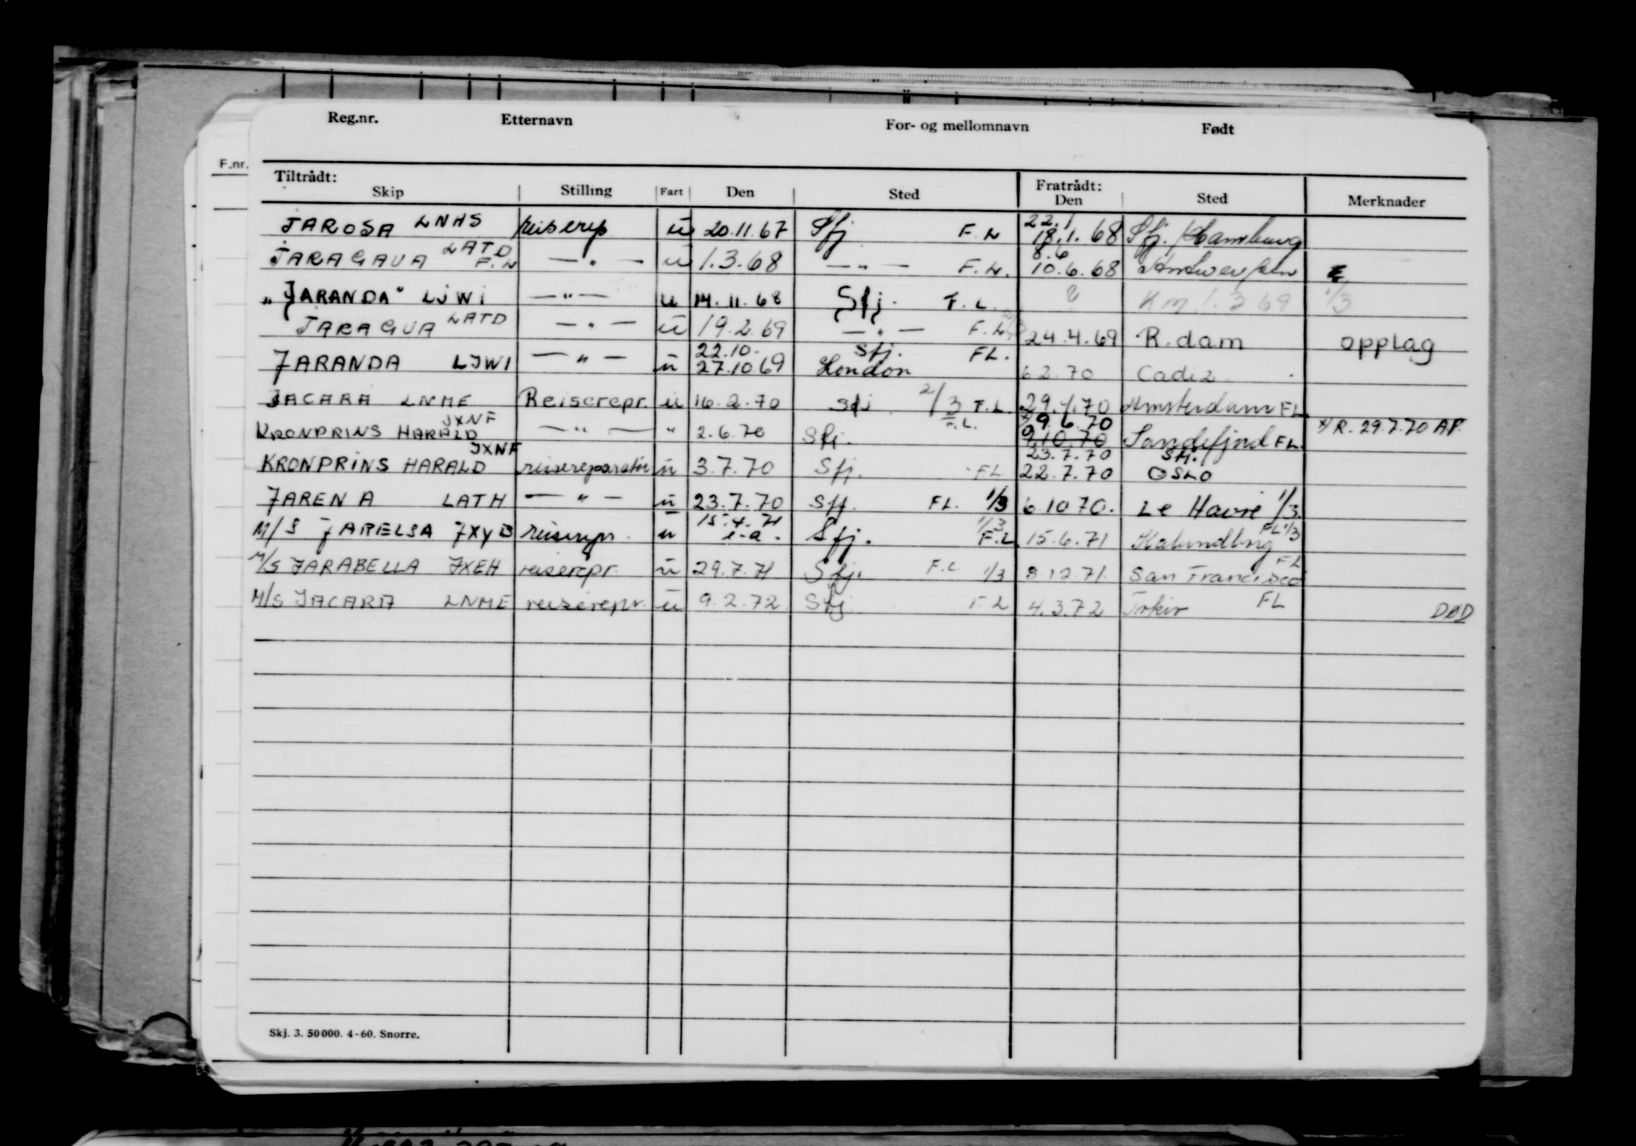 Reg.nr. Etternavn For- og mellomnavn Født
F.nr.
Tiltrådt: Fratrådt:
Skip Stilling Fart Den Sted Den Sted Merknader
JAROSA LNHS reiserep ü 20.11.67 Sfj F.L 22.1 18.1.68 Sfj. / Hamburg
JARAGAUA LATD F.L — " — ü 1.3.68 — " — F.L. 8.6 10.6.68 Antwerpen
"JARANDA" LJWI — " — u 14.11.68 Sfj. F.L. ? 1.3 69 1/3
JARAGUA LATD — " — ü 19.2.69 — " — F.L 24.4.69 R.dam opplag
JARANDA LJWI — " — ü 22.10. 27.10 69 Sfj. London FL. 6 2.70 Cadiz
JACARA LNME Reiserepr. ü 16.2.70 Sfj 2/3 F.L. 29.4.70 Amsterdam FL
KRONPRINS HARALD JXNF — " — " 2.6.70 Sfj. F.L. 9.6.70 9.10.70 Sandefjord FL R. 29.7.70 AP
KRONPRINS HARALD JXNF reisereparatør ü 3.7.70 Sfj. FL 23.7.70 22.7.70 Sfj. OSLO
JARENA LATH — " — ü 23.7.70 Sfj. FL. 1/3 6.10 70. Le Havre 1/3
M/S JARELSA JXYB reiserepr. u 15.4.71 Sfj. 1/3 F.L 15.6.71 Kalundborg FL 1/3
M/S JARABELLA JXEH reiserepr. ü 29.7.71 Sfj. F.L 1/3 8.12.71 San Francisco FL
M/S JACARA LNME reiserepr. ü 9.2.72 Sfj F L 4.3.72 FL DØD
Skj. 3. 50000. 4-60. Snorre.